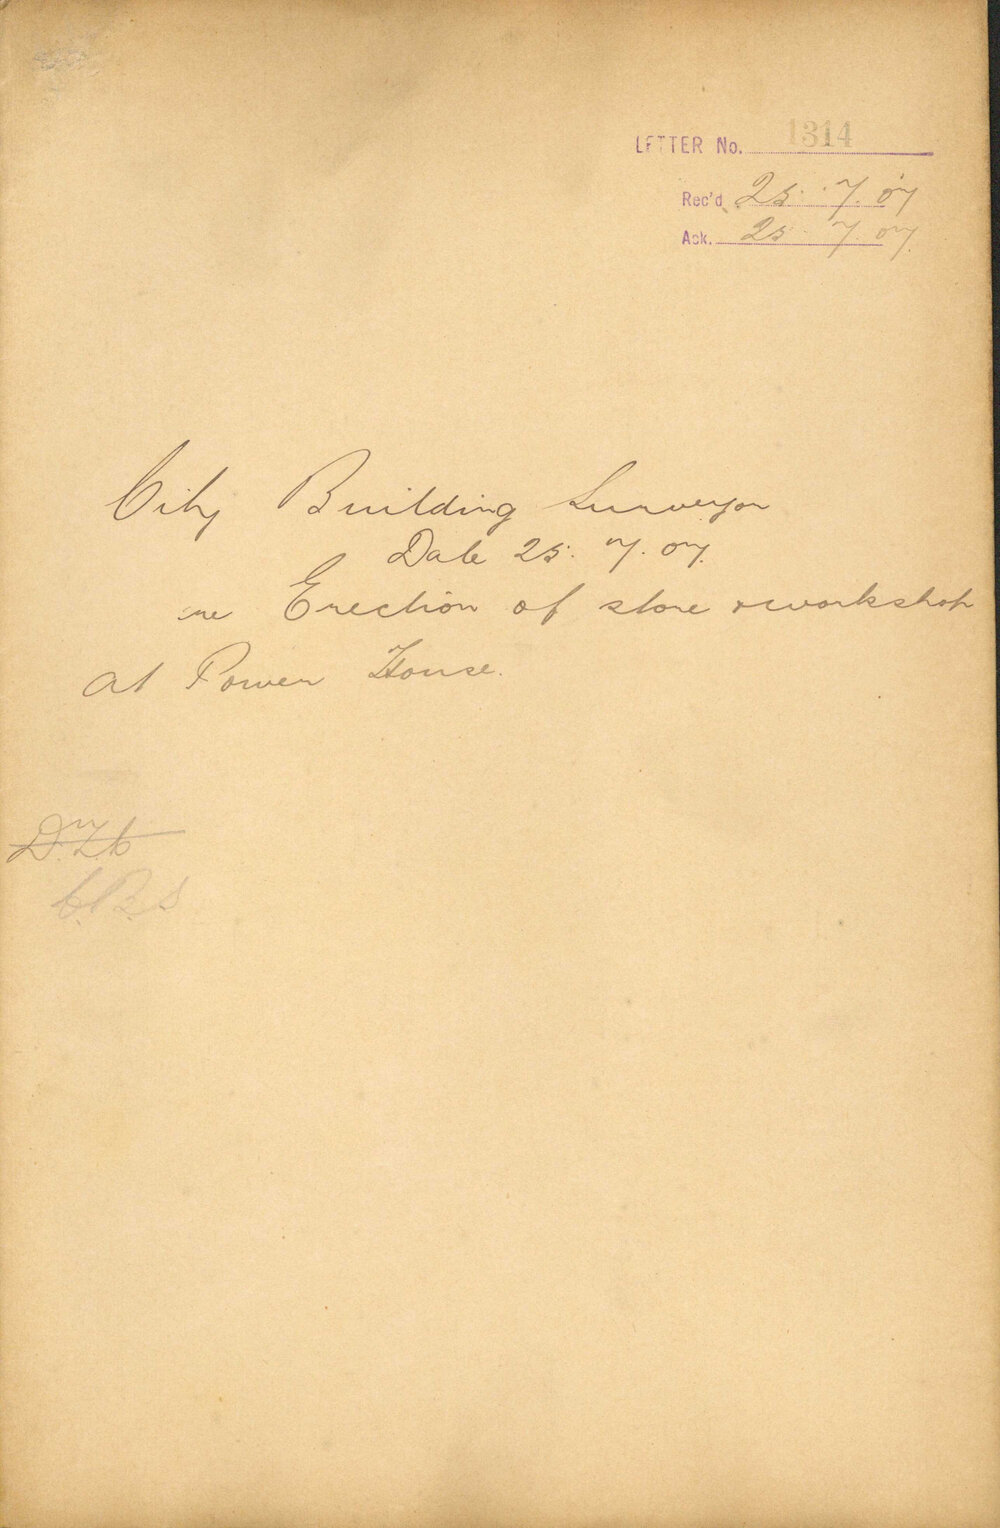 LETTER No. 1314
Rec'd 25.7.07
Ack. 25.7.07
City Building Surveyor
Date 25.7.07.
re Erection of store & workshop
at Power House.
C.B.S